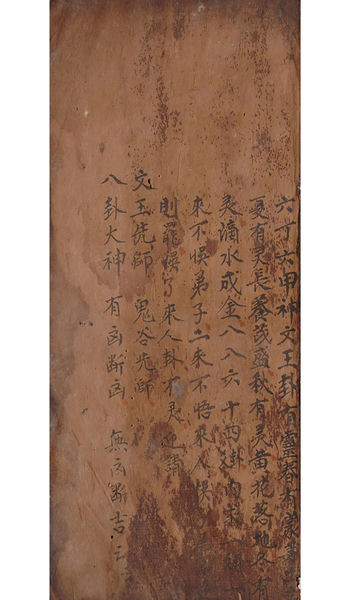 六丁六甲神文王卦有靈春有
夏有灵長養茂盛秋有灵黄花落地冬有
灵滴水成金八八六十四卦内
來不悮弟子二來不悟來人悮
則罪悮了來人卦不灵迎請
文王先師 鬼谷先師
八卦大神 有凶斷凶 無凶斷吉云